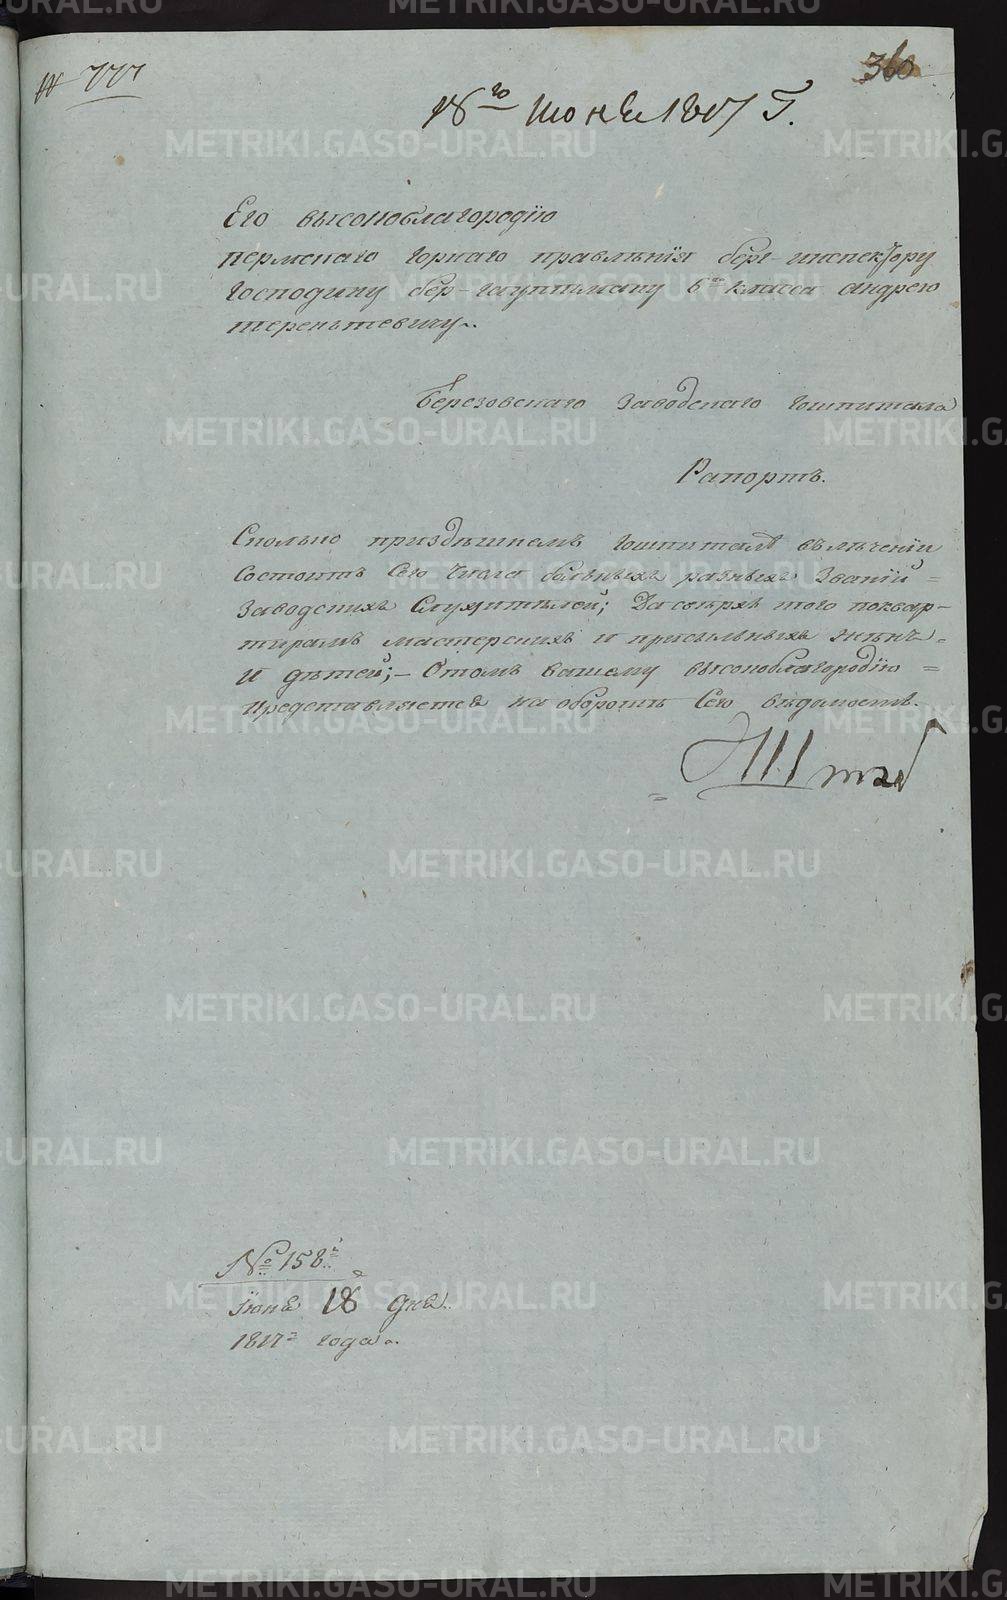 № 777
360
18го июня 1817 г.
Его высокоблагородїю
пермскаго горнаго правленїя берг-инспектору
господину бер-гауптману 6го класса андрею
терентьевичу..
Березовскаго заводскаго гошпиталя
Рапортъ.
Сколько приздѣшнемъ гошпиталѣ въ лѣченїи
состоитъ сего числа больныхъ разныхъ званїй
заводскихъ служителей; да сверхъ того поквар-
тирамъ мастерскихъ и присыльныхъ женъ
и дѣтей;- О томъ вашему высокоблагородїю
представляется на оборотѣ сего вѣдомость.
№ 158й
июня 18 дня..
1817го года..
METRIKI.GASO-URAL.RU